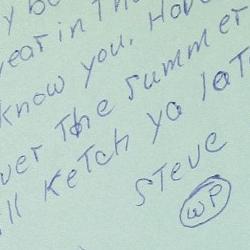 y b
year in Th
know you. Hav
ver The summer
ll Ketch ya lat
Steve
WP